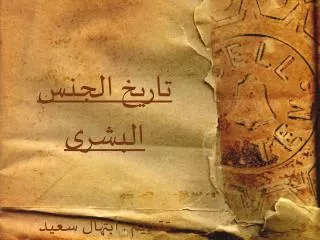 تاريخ الجنس
البشرى
تقديم : ابتهال سعيد